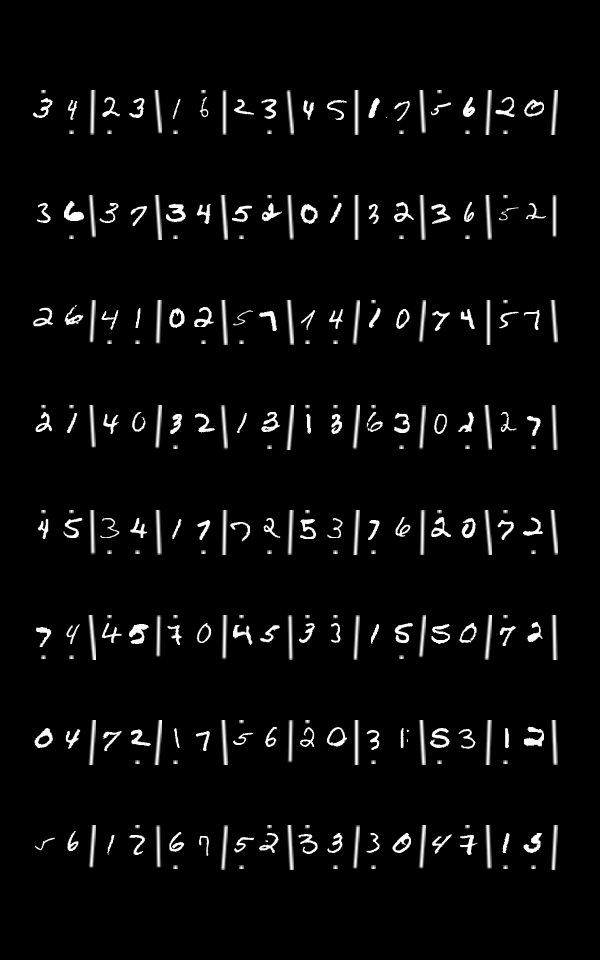 3 4 | 2 3 | 1 6 | 2 3 | 4 5 | 1 7 | 5 6 | 2 0 |
3 6 | 3 7 | 3 4 | 5 2 | 0 1 | 3 2 | 3 6 | 5 2 |
2 6 | 4 1 | 0 2 | 5 7 | 1 4 | 1 0 | 7 4 | 5 7 |
2 1 | 4 0 | 3 2 | 1 3 | 1 3 | 6 3 | 0 2 | 2 7 |
4 5 | 3 4 | 1 7 | 7 2 | 5 3 | 7 6 | 2 0 | 7 2 |
7 4 | 4 5 | 7 0 | 4 5 | 3 3 | 1 5 | 5 0 | 7 2 |
0 4 | 7 2 | 1 7 | 5 6 | 2 0 | 3 1 | 5 3 | 1 2 |
5 6 | 1 2 | 6 7 | 5 2 | 3 3 | 3 0 | 4 7 | 1 3 |